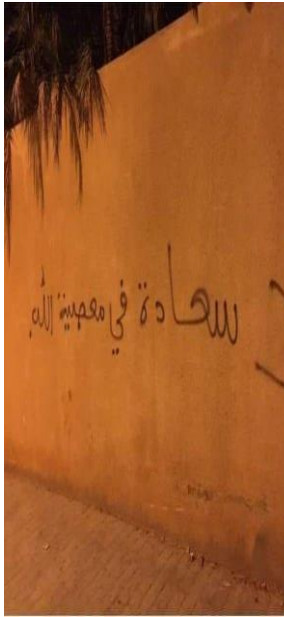 سعادة في معصية الله